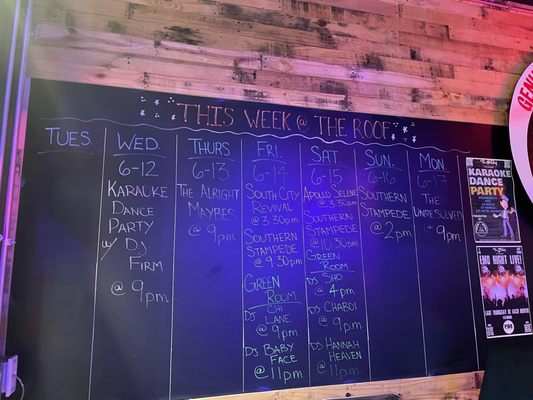 THIS WEEK @ THE ROOF
TUES.
WED.
6-12
KARAOKE
DANCE
PARTY
w/ DJ
FIRM
@ 9pm
THURS
6-13
THE ALRIGHT
MAYBES
@ 9pm
FRI.
6-14
SOUTH CITY
REVIVAL
@ 3:30pm
SOUTHERN
STAMPEDE
@ 9:30pm
GREEN
ROOM
CHI
LANE
@ 9pm
DJ BABY
FACE
@ 11pm
SAT.
6-15
APOLLO SELENE
@ 3:30pm
SOUTHERN
STAMPEDE
@ 10:30pm
GREEN
ROOM
DJ SHO
@ 4pm
DJ CHABDI
@ 9pm
DJ HANNAH
HEAVEN
@ 11pm
SUN.
6-16
SOUTHERN
STAMPEDE
@ 2pm
MON.
6-17
THE
UNRESOLVED
@ 9pm
KARAOKE
DANCE
PARTY
EMO NIGHT
LIVE!
GENUI